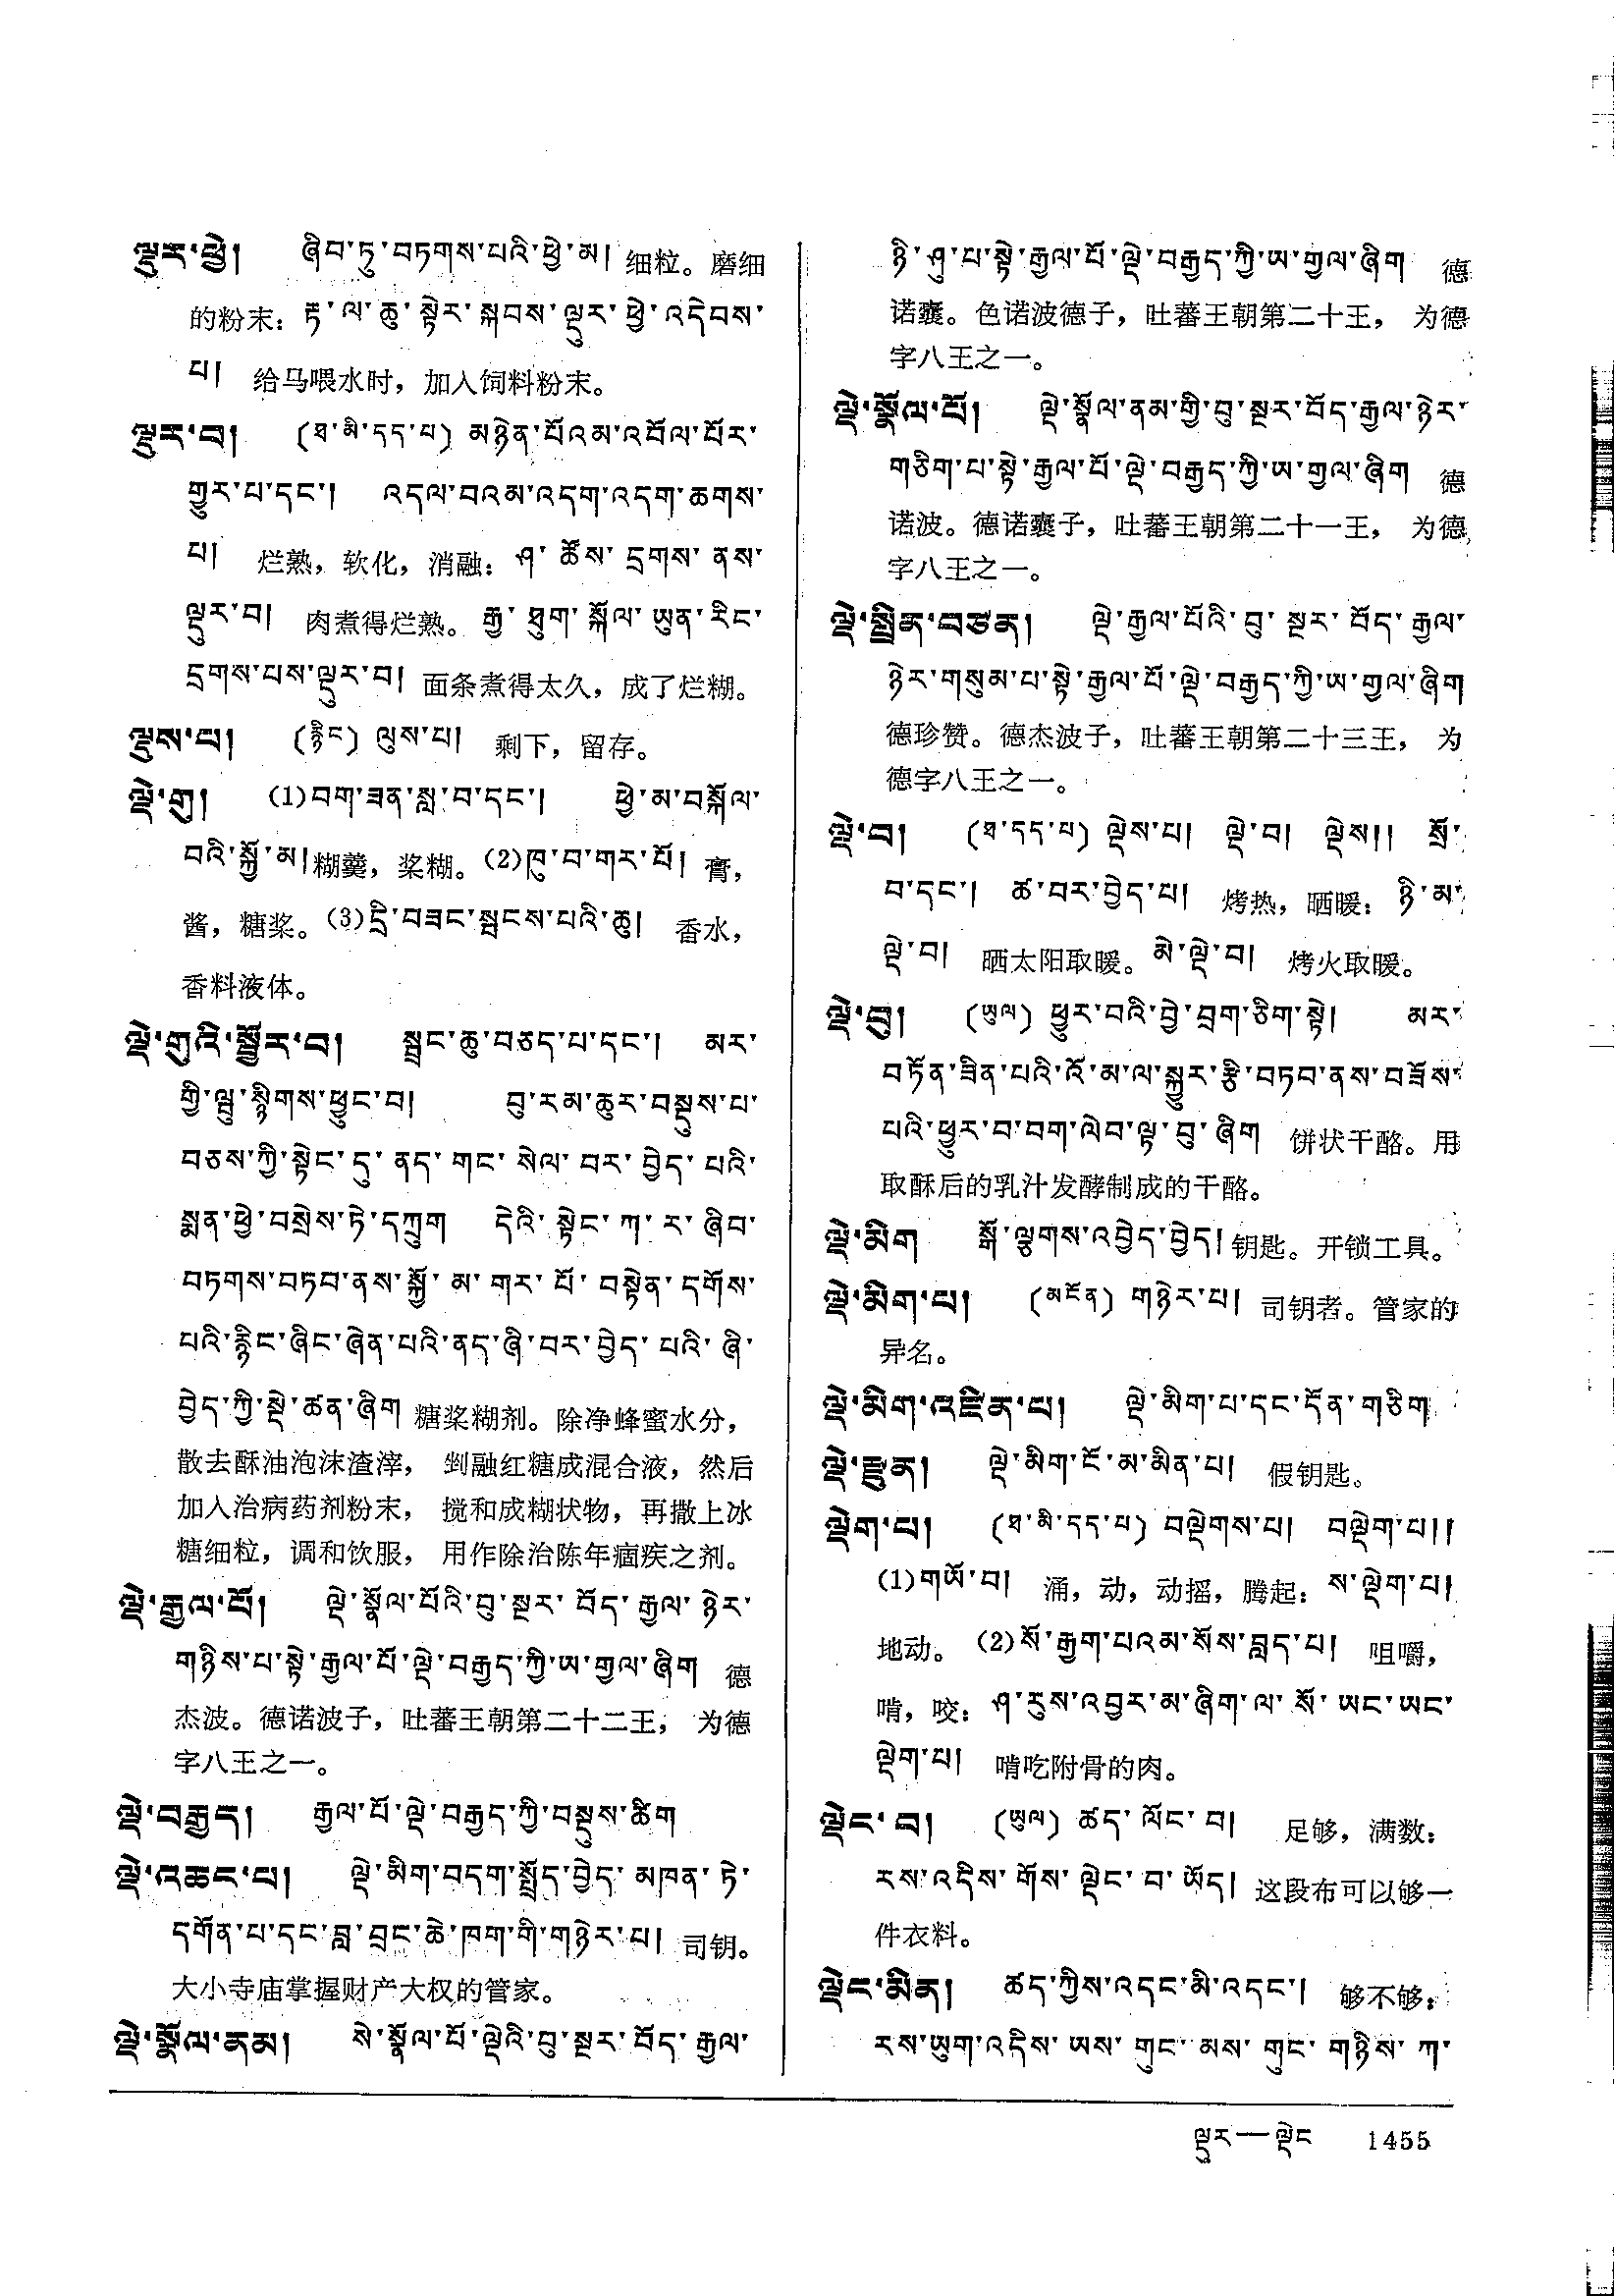 ལྡུར་ཕྱེ། ཞིབ་ཏུ་བཏགས་པའི་ཕྱེ་མ། 细粒。磨细
的粉末：རྟ་ལ་ཆུ་སྟེར་སྐབས་ལྡུར་ཕྱེ་འདེབས་
པ། 给马喂水时，加入饲料粉末。
ལྡུར་བ། (ཐ་མི་དད་པ) མཉེན་པོའམ་འབོལ་པོར་
གྱུར་པ་དང་། འདལ་བའམ་འདག་འདག་ཆགས་
པ། 烂熟，软化，消融：ཤ་ཚོས་དྲགས་ནས་
ལྡུར་བ། 肉煮得烂熟。རྒྱ་ཐུག་སྐོལ་ཡུན་རིང་
དྲགས་པས་ལྡུར་བ། 面条煮得太久，成了烂糊。
ལྡུས་པ། (རྙིང) ལུས་པ། 剩下，留存。
ལྡེ་གུ། (1)བག་ཟན་སླ་བ་དང་། ཕྱེ་མ་བསྐོལ་
བའི་སྐྱོ་མ།糊羹，桨糊。(2)ཁུ་བ་གར་པོ། 膏，
酱，糖桨。(3)དྲི་བཟང་སྦངས་པའི་ཆུ། 香水，
香料液体。
ལྡེ་གུའི་སྦྱོར་བ། སྦྲང་ཆུ་བཅད་པ་དང་། མར་
གྱི་ལྦུ་སྙིགས་ཕྱུང་བ། བུ་རམ་ཆུར་བསྡུས་པ་
བཅས་ཀྱི་སྟེང་དུ་ནད་གང་སེལ་བར་བྱེད་པའི་
སྨན་ཕྱེ་བསྲེས་ཏེ་དཀྲུག དེའི་སྟེང་ཀ་ར་ཞིབ་
བཏགས་བཏབ་ནས་སྐྱོ་མ་གར་པོ་བསྟེན་དགོས་
པའི་རྙིང་ཞིང་ཞེན་པའི་ནད་ཞི་བར་བྱེད་པའི་ཞི་
བྱེད་ཀྱི་སྡེ་ཚན་ཞིག 糖桨糊剂。除净蜂蜜水分，
散去酥油泡沫渣滓， 到融红糖成混合液，然后
加入治病药剂粉末， 搅和成糊状物，再撒上冰
糖细粒，调和饮服， 用作除治陈年痼疾之剂。
ལྡེ་རྒྱལ་པོ། ལྡེ་སྣོལ་པོའི་བུ་སྔར་བོད་རྒྱལ་ཉེར་
གཉིས་པ་སྟེ་རྒྱལ་པོ་ལྡེ་བརྒྱད་ཀྱི་ཨ་གྱལ་ཞིག 德
杰波。德诺波子，吐蕃王朝第二十二王， 为德
字八王之一。
ལྡེ་བརྒྱད། རྒྱལ་པོ་ལྡེ་བརྒྱད་ཀྱི་བསྡུས་ཚིག
ལྡེ་འཆང་པ། ལྡེ་མིག་བདག་སྤྲོད་བྱེད་མཁན་ཏེ་
དགོན་པ་དང་བླ་བྲང་ཆེ་ཁག་གི་གཉེར་པ། 司钥。
大小寺庙掌握财产大权的管家。
ལྡེ་སྣོལ་ནམ། སེ་སྣོལ་པོ་ལྡེའི་བུ་སྔར་བོད་རྒྱལ་
ཉི་ཤུ་པ་སྟེ་རྒྱལ་པོ་ལྡེ་བརྒྱད་ཀྱི་ཨ་གྱལ་ཞིག 德
诺囊。色诺波德子，吐蕃王朝第二十王， 为德
字八王之一。
ལྡེ་སྣོལ་པོ། ལྡེ་སྣོལ་ནམ་གྱི་བུ་སྔར་བོད་རྒྱལ་ཉེར་
གཅིག་པ་སྟེ་རྒྱལ་པོ་ལྡེ་བརྒྱད་ཀྱི་ཨ་གྱལ་ཞིག 德
诺波。德诺囊子，吐蕃王朝第二十一王， 为德
字八王之一。
ལྡེ་སྤྲིན་བཙན། ལྡེ་རྒྱལ་པོའི་བུ་སྔར་བོད་རྒྱལ་
ཉེར་གསུམ་པ་སྟེ་རྒྱལ་པོ་ལྡེ་བརྒྱད་ཀྱི་ཨ་གྱལ་ཞིག
德珍赞。德杰波子，吐蕃王朝第二十三王， 为
德字八王之一。
ལྡེ་བ། (ཐ་དད་པ) ལྡེས་པ། ལྡེ་བ། ལྡེས།། སྲོ་
བ་དང་། ཚ་བར་བྱེད་པ། 烤热，晒暖：ཉི་མ་
ལྡེ་བ། 晒太阳取暖。མེ་ལྡེ་བ། 烤火取暖。
ལྡེ་བུ། (ཡུལ) ཕྱུར་བའི་བྱེ་བྲག་ཅིག་སྟེ། མར་
བཏོན་ཟིན་པའི་འོ་མ་ལ་སྐྱུར་རྩི་བཏབ་ནས་བཟོས་
པའི་ཕྱུར་བ་བག་ལེབ་ལྟ་བུ་ཞིག 饼状干酪。用
取酥后的乳汁发酵制成的干酪。
ལྡེ་མིག སྒོ་ལྕགས་འབྱེད་བྱེད། 钥匙。开锁工具。
ལྡེ་མིག་པ། (མངོན) གཉེར་པ། 司钥者。管家的
异名。
ལྡེ་མིག་འཛིན་པ། ལྡེ་མིག་པ་དང་དོན་གཅིག
ལྡེ་རྫུན། ལྡེ་མིག་ངོ་མ་མིན་པ། 假钥匙。
ལྡེག་པ། (ཐ་མི་དད་པ) བལྡེགས་པ། བལྡེག་པ།།
(1)གཡོ་བ། 涌，动，动摇，腾起：ས་ལྡེག་པ།
地动。(2)སོ་རྒྱག་པའམ་སོས་བླད་པ། 咀嚼，
啃，咬：ཤ་རུས་འབྱར་མ་ཞིག་ལ་སོ་ཡང་ཡང་
ལྡེག་པ། 啃吃附骨的肉。
ལྡེང་བ། (ཡུལ) ཚད་ལོང་བ། 足够，满数：
རས་འདིས་གོས་ལྡེང་བ་ཡོད། 这段布可以够一
件衣料。
ལྡེང་མིན། ཚད་ཀྱིས་འདང་མི་འདང་། 够不够：
རས་ཡུག་འདིས་ཡས་གུང་མས་གུང་གཉིས་ཀ་
ལྡུར—ལྡེང 1455